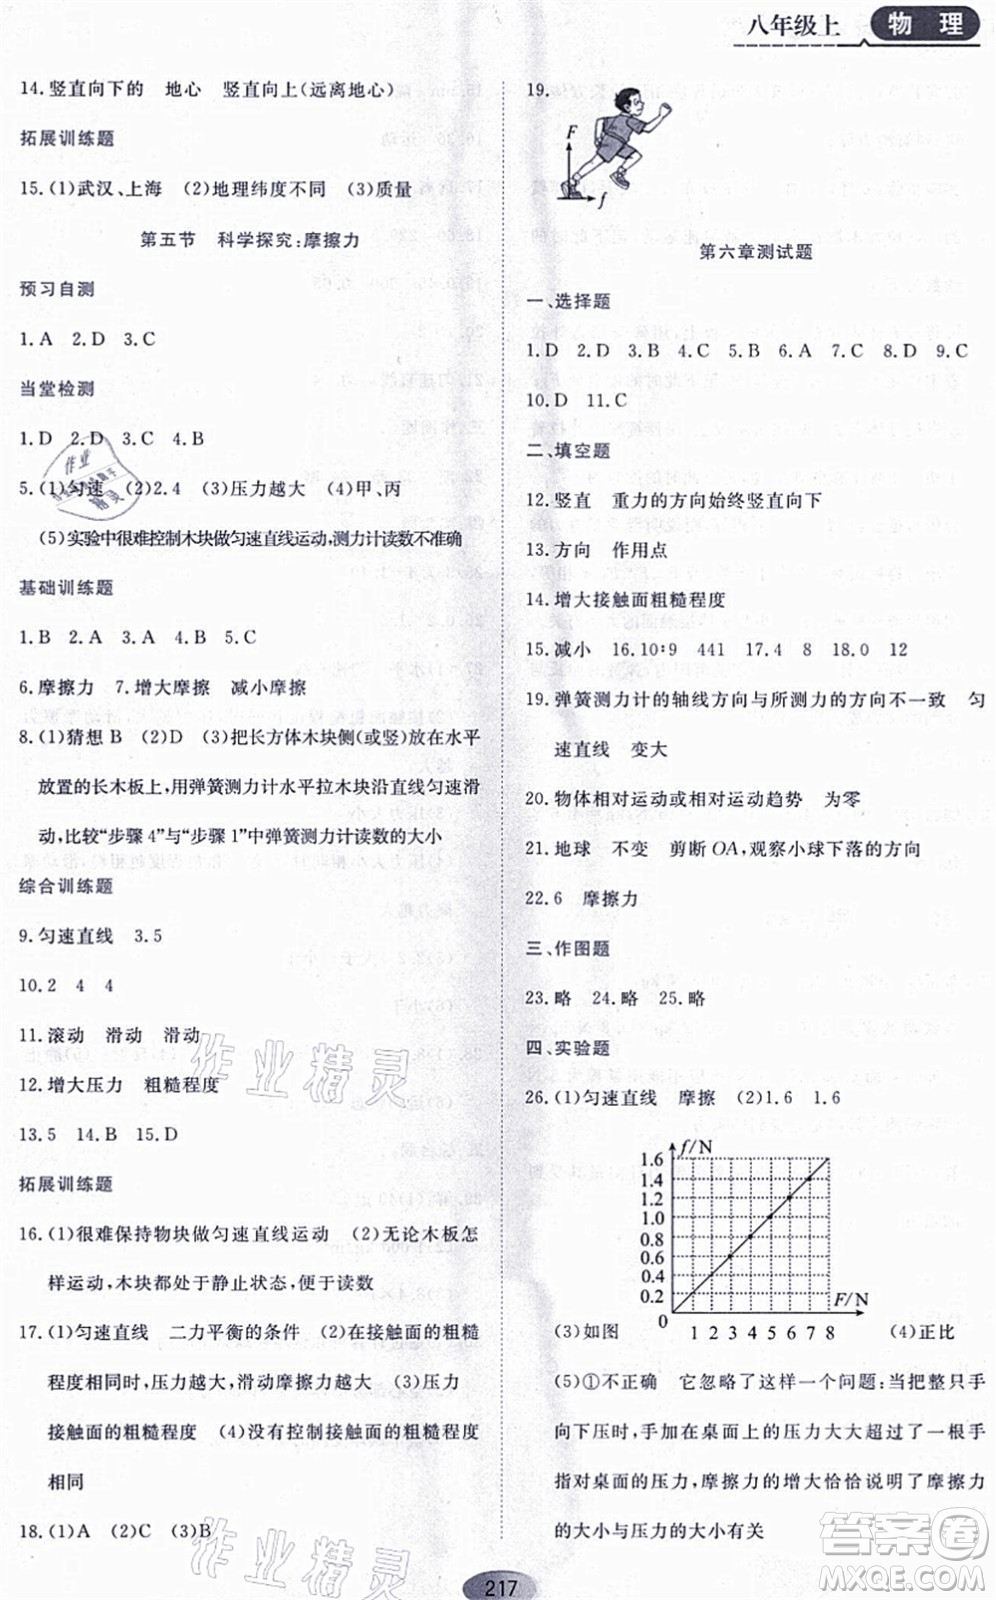 八年级上 物 理
14.竖直向下的 地心 竖直向上(远离地心)
拓展训练题
15.(1)武汉、上海 (2)地理纬度不同 (3)质量
第五节 科学探究:摩擦力
预习自测
1.A 2.D 3.C
当堂检测
1.D 2.D 3.C 4.B
5.(1)匀速 (2)2.4 (3)压力越大 (4)甲、丙
(5)实验中很难控制木块做匀速直线运动,测力计读数不准确
基础训练题
1.B 2.A 3.A 4.B 5.C
6.摩擦力 7.增大摩擦 减小摩擦
8.(1)猜想B (2)D (3)把长方体木块侧(或竖)放在水平
放置的长木板上,用弹簧测力计水平拉木块沿直线匀速滑
动,比较“步骤4”与“步骤1”中弹簧测力计读数的大小
综合训练题
9.匀速直线 3.5
10.2 4 4
11.滚动 滑动 滑动
12.增大压力 粗糙程度
13.5 14.B 15.D
拓展训练题
16.(1)很难保持物块做匀速直线运动 (2)无论木板怎
样运动,木块都处于静止状态,便于读数
17.(1)匀速直线 二力平衡的条件 (2)在接触面的粗糙
程度相同时,压力越大,滑动摩擦力越大 (3)压力
接触面的粗糙程度 (4)没有控制接触面的粗糙程度
相同
18.(1)A (2)C (3)B
19.
F
f
第六章测试题
一、选择题
1.D 2.D 3.B 4.C 5.B 6.A 7.C 8.D 9.C
10.D 11.C
二、填空题
12.竖直 重力的方向始终竖直向下
13.方向 作用点
14.增大接触面粗糙程度
15.减小 16.10:9 441 17.4 8 18.0 12
19.弹簧测力计的轴线方向与所测力的方向不一致 匀
速直线 变大
20.物体相对运动或相对运动趋势 为零
21.地球 不变 剪断OA,观察小球下落的方向
22.6 摩擦力
三、作图题
23.略 24.略 25.略
四、实验题
26.(1)匀速直线 摩擦 (2)1.6 1.6
f/N
1.6
1.4
1.2
1.0
0.8
0.6
0.4
0.2
0 1 2 3 4 5 6 7 8
F/N
(3)如图 (4)正比
(5)①不正确 它忽略了这样一个问题:当把整只手
向下压时,手加在桌面上的压力大大超过了一只手
指对桌面的压力,摩擦力的增大恰恰说明了摩擦力
的大小与压力的大小有关
217
作业精灵
作业精灵
答案圈
MXQE.COM